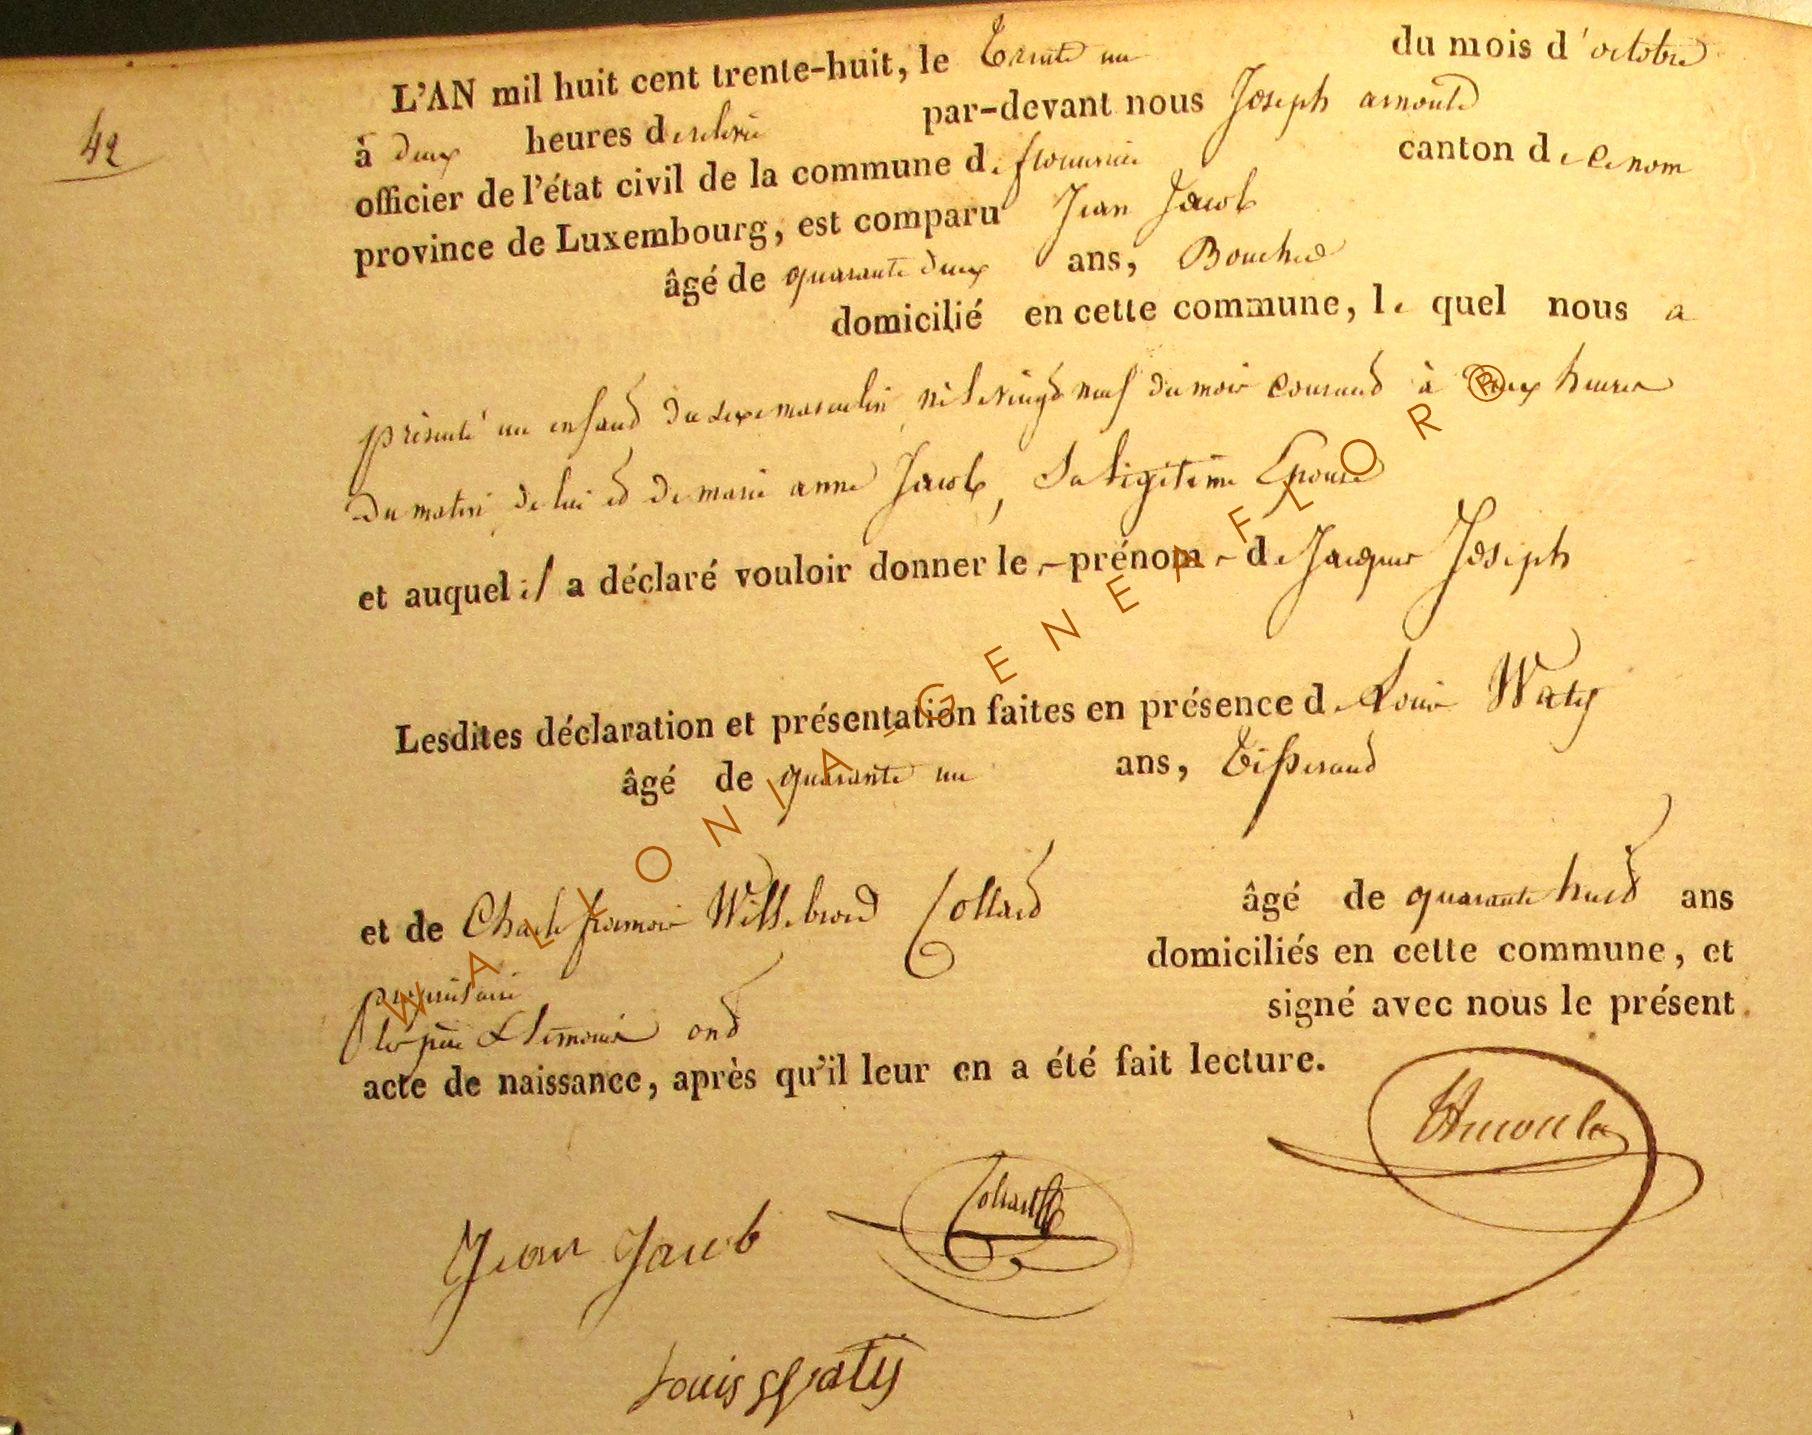 42
L'AN mil huit cent trente-huit, le Trente un du mois d'octobre
à deux heures de relevée par-devant nous Joseph arnould
officier de l'état civil de la commune de florenville canton de ce nom
province de Luxembourg, est comparu Jean Jacob
âgé de quarante deux ans, Boucher
domicilié en cette commune, le quel nous a
présenté un enfand du sexe masculin né le vingt neuf du mois courand à Deux heures
du matin de lui et de marie anne Jacob, Sa légitime Epouse
et auquel il a déclaré vouloir donner le prénom de Jacques Joseph
Lesdites déclaration et présentation faites en présence de Louis Waty
âgé de quarante un ans, Tisserand
et de Charle françois Willebrord Collard âgé de quarante huit ans
propriétaire domiciliés en cette commune, et
les père & témoins ont signé avec nous le présent
acte de naissance, après qu'il leur en a été fait lecture.
Arnould
Collard
Jean Jacob
Louis Waty
WALLONIA-GENEAFLOR®